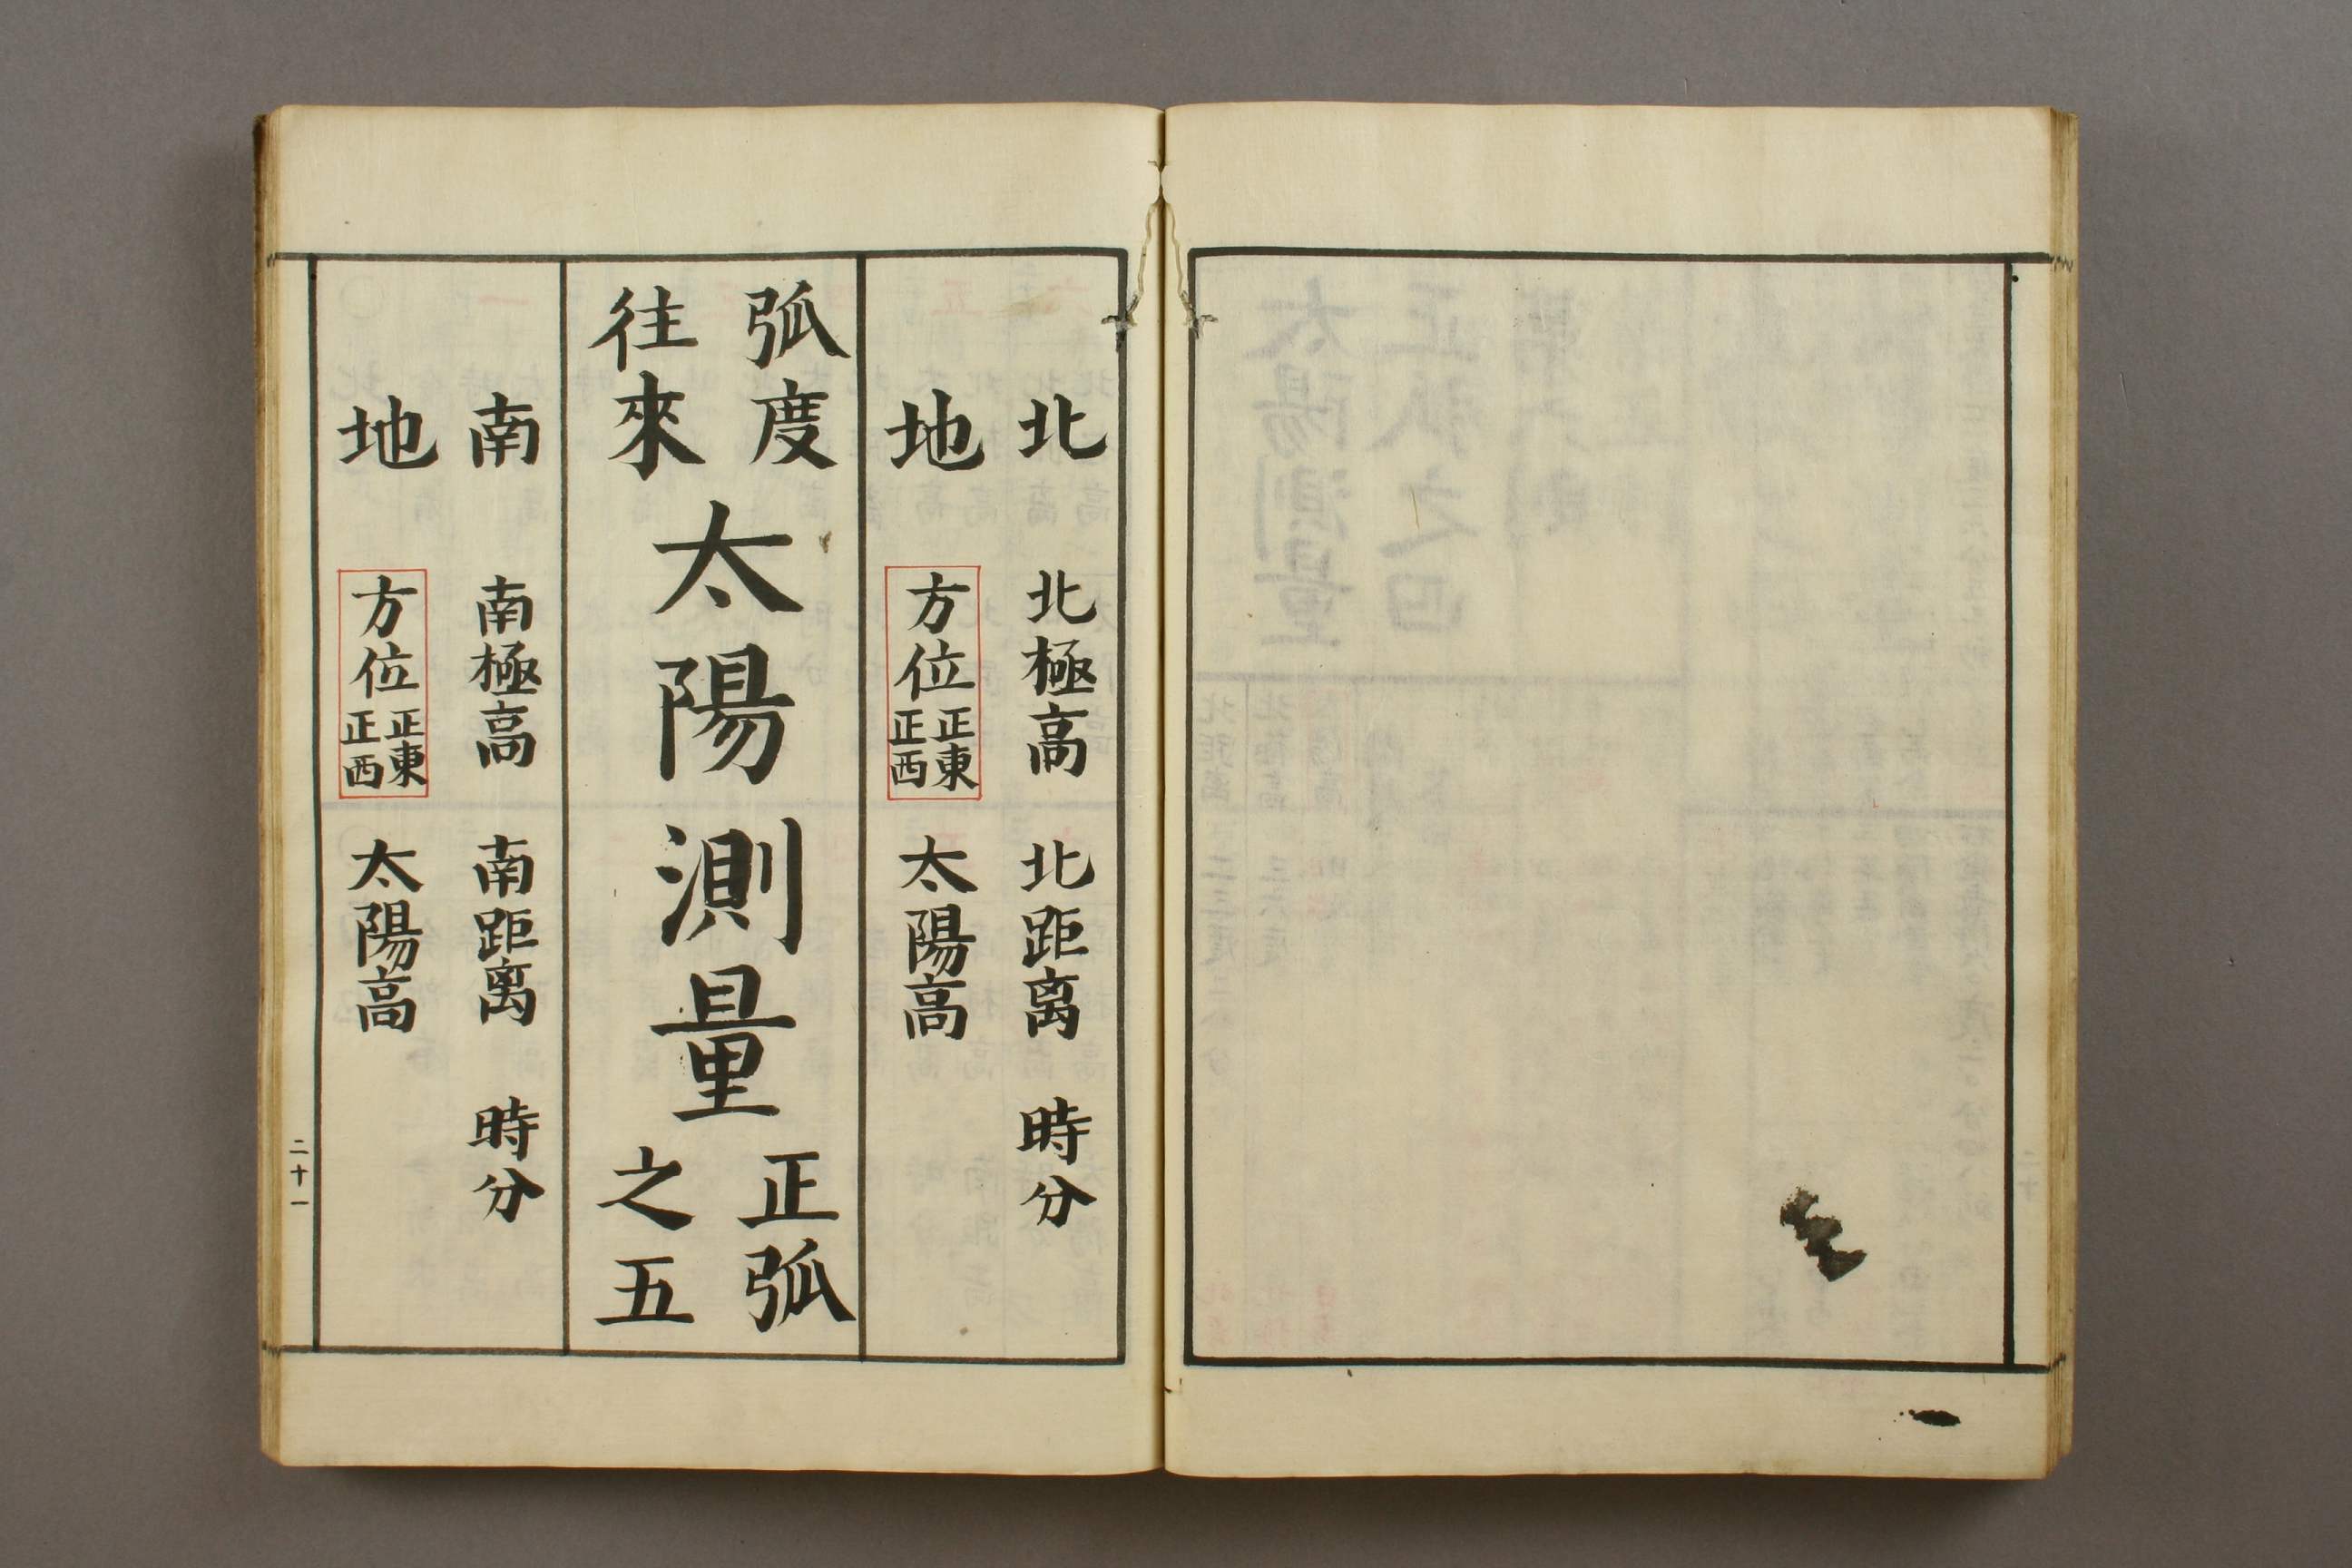 北　北極高　北距离　時分
地　方位　正東　正西　太陽高
弧度
往來
太陽測量
正弧
之五
南　南極高　南距离　時分
地　方位　正東　正西　太陽高
二十一